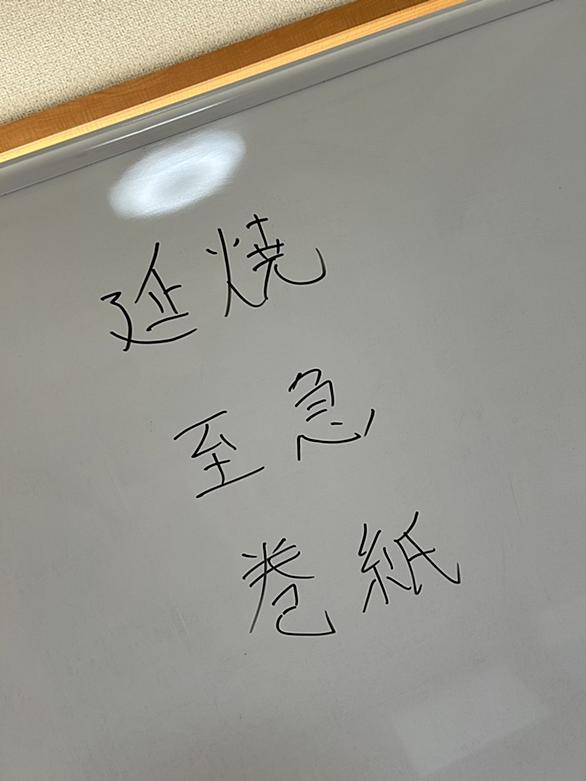 延焼
至急
巻紙